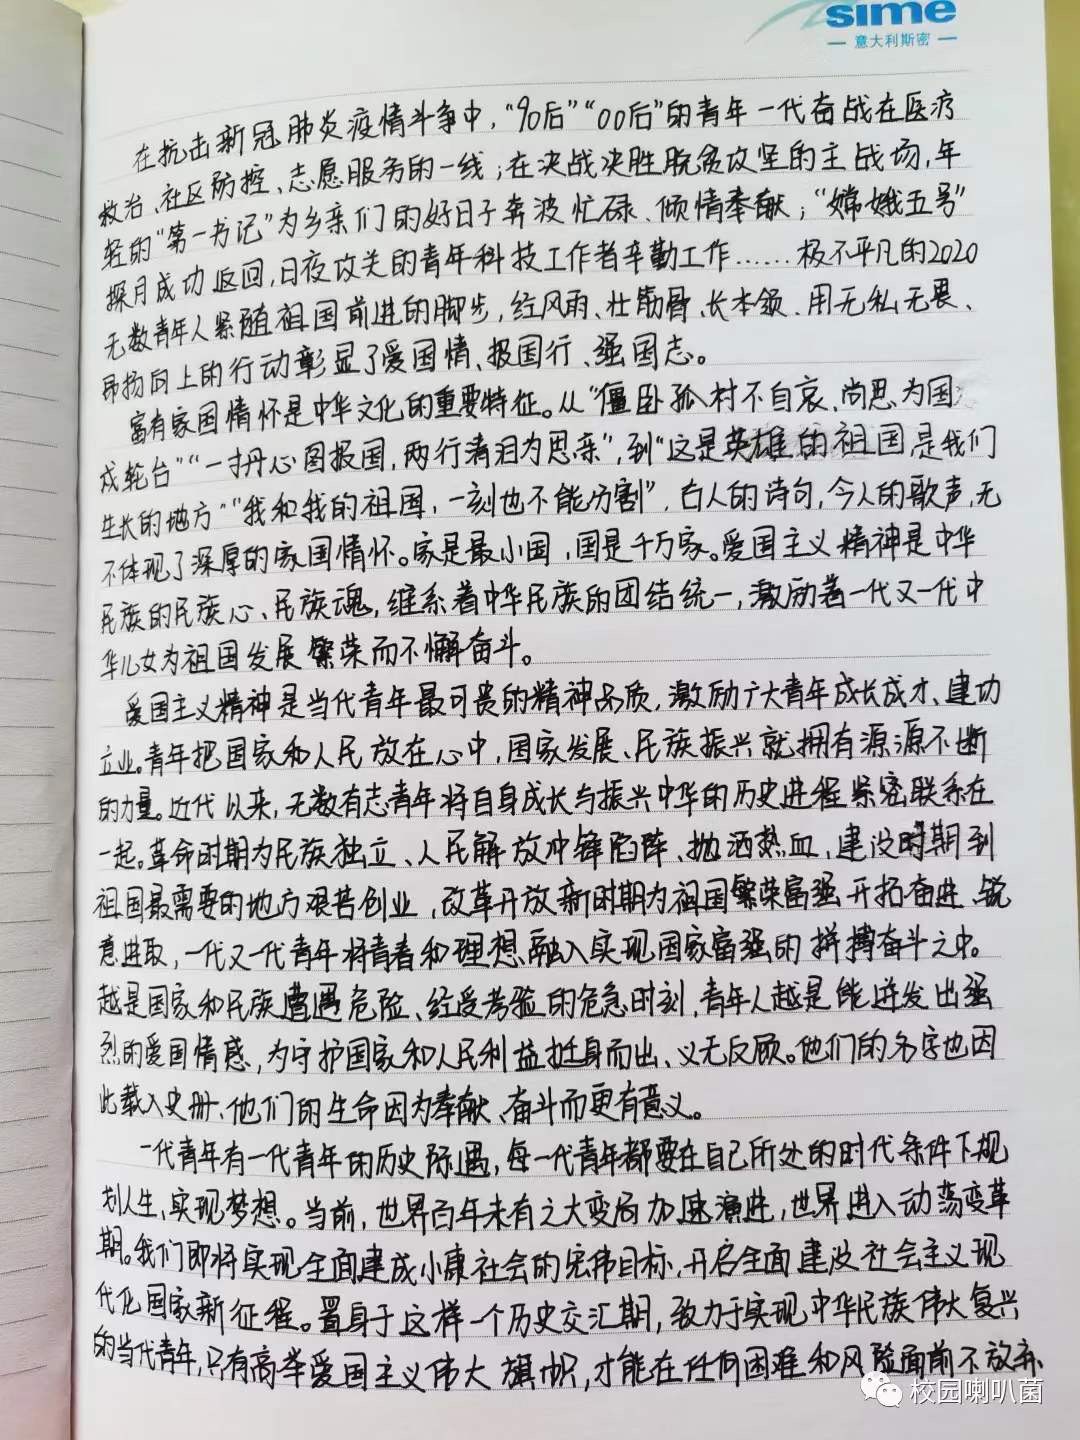 sime
意大利斯密
在抗击新冠肺炎疫情斗争中，“90后”“00后”的青年一代奋战在医疗
救治、社区防控、志愿服务的一线；在决战决胜脱贫攻坚的主战场，年
轻的“第一书记”为乡亲们的好日子奔波忙碌、倾情奉献；“嫦娥五号”
探月成功返回，日夜攻关的青年科技工作者辛勤工作……极不平凡的2020
无数青年人紧随祖国前进的脚步，经风雨、壮筋骨、长本领、用无私无畏、
昂扬向上的行动彰显了爱国情、报国行、强国志。
富有家国情怀是中华文化的重要特征。从“僵卧孤村不自哀、尚思为国
戍轮台”“一寸丹心图报国，两行清泪为思亲”，到“这是英雄的祖国，是我们
生长的地方”“我和我的祖国，一刻也不能分割”，古人的诗句，今人的歌声，无
不体现了深厚的家国情怀。家是最小国，国是千万家。爱国主义精神是中华
民族的民族心、民族魂，维系着中华民族的团结统一，激励着一代又一代中
华儿女为祖国发展繁荣而不懈奋斗。
爱国主义精神是当代青年最可贵的精神品质，激励广大青年成长成才、建功
立业。青年把国家和人民放在心中，国家发展、民族振兴就拥有源源不断
的力量。近代以来，无数有志青年将自身成长与振兴中华的历史进程紧密联系在
一起。革命时期为民族独立、人民解放冲锋陷阵、抛洒热血，建设时期到
祖国最需要的地方艰苦创业，改革开放新时期为祖国繁荣富强开拓奋进、锐
意进取，一代又一代青年将青春和理想融入实现国家富强的拼搏奋斗之中。
越是国家和民族遭遇危险、经受考验的危急时刻，青年人越是能迸发出强
烈的爱国情感，为守护国家和人民利益挺身而出、义无反顾。他们的名字也因
此载入史册、他们的生命因为奉献、奋斗而更有意义。
一代青年有一代青年的历史际遇，每一代青年都要在自己所处的时代条件下规
划人生，实现梦想。当前，世界百年未有之大变局加速演进，世界进入动荡变革
期。我们即将实现全面建成小康社会的宏伟目标，开启全面建设社会主义现
代化国家新征程。置身于这样一个历史交汇期，致力于实现中华民族伟大复兴
的当代青年，只有高举爱国主义伟大旗帜，才能在任何困难和风险面前不放弃、
校园喇叭菌